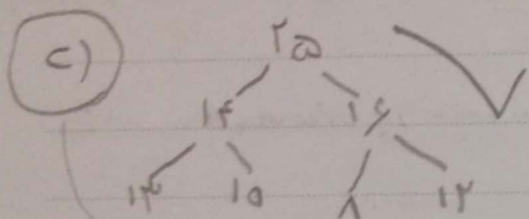 c)
۲۵
۱۴ ۱۶
۱۳ ۱۰ ۸ ۱۲